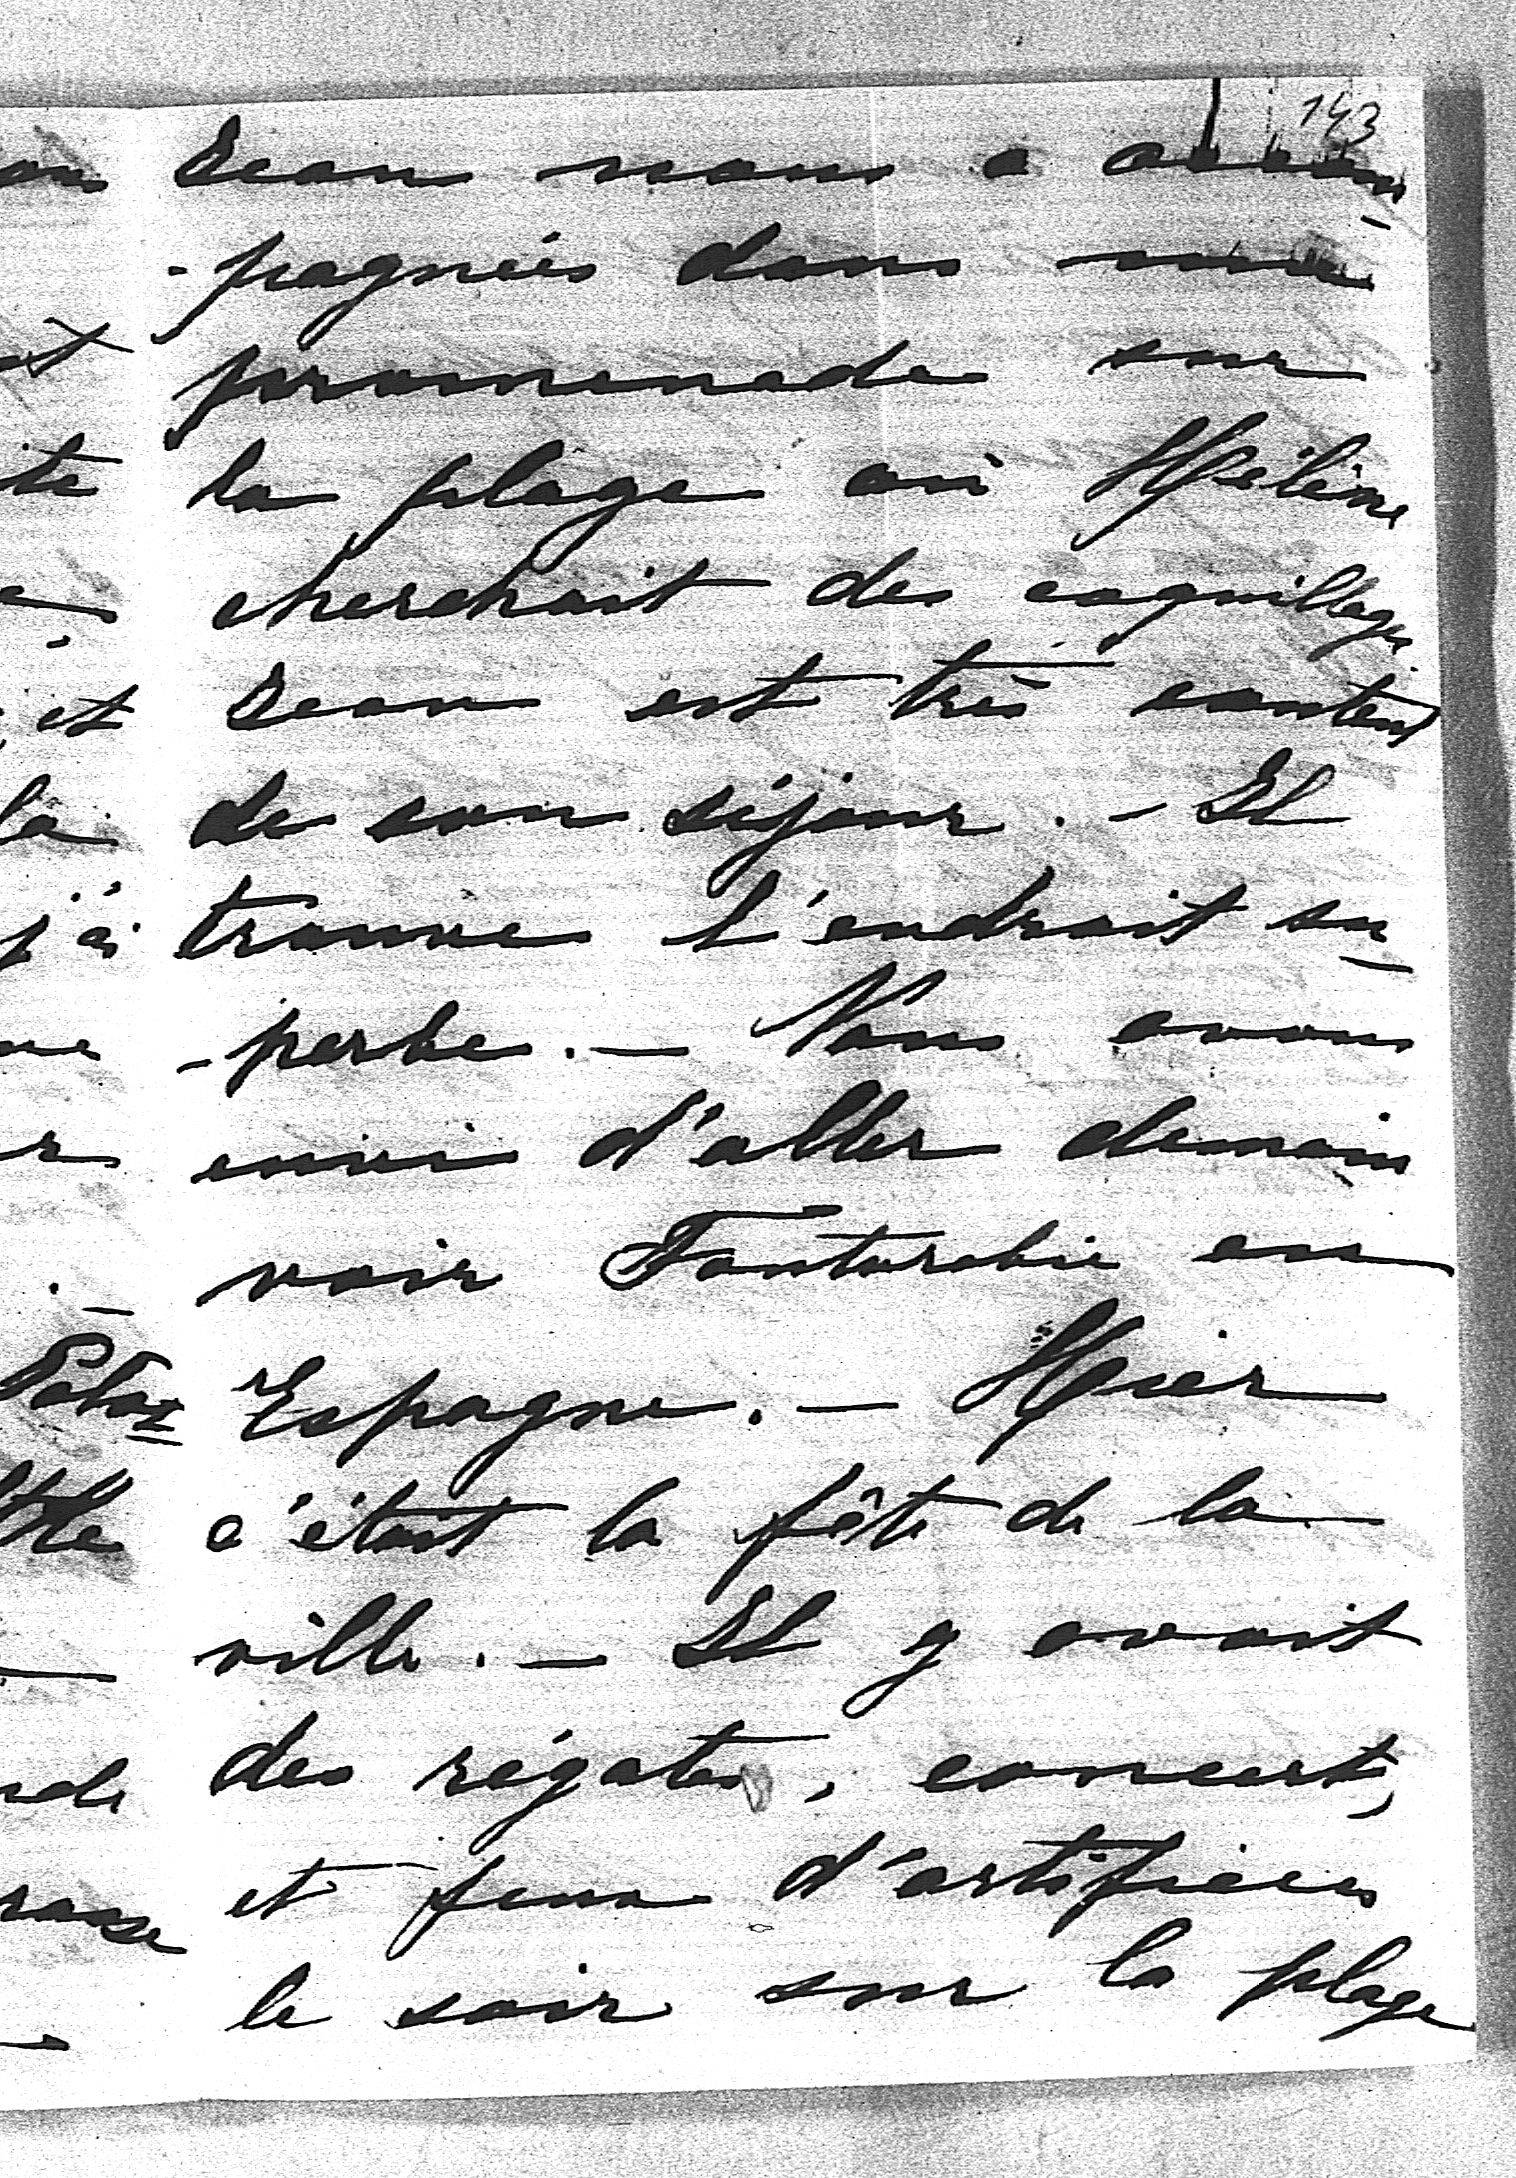 143
Jean nous a accom-
-pagnées dans une
promenade sur
la plage où Hélène
cherchait des coquillages
et Jean est très content
la de son séjour. - Il
j'ai trouve l'endroit su-
-perbe. - Nous avons
envie d'aller demain
voir Fontarabie en
Espagne. - Hier
c'était la fête de la
ville. - Il y avait
des régates, concert,
et feux d'artifices
le soir sur la plage